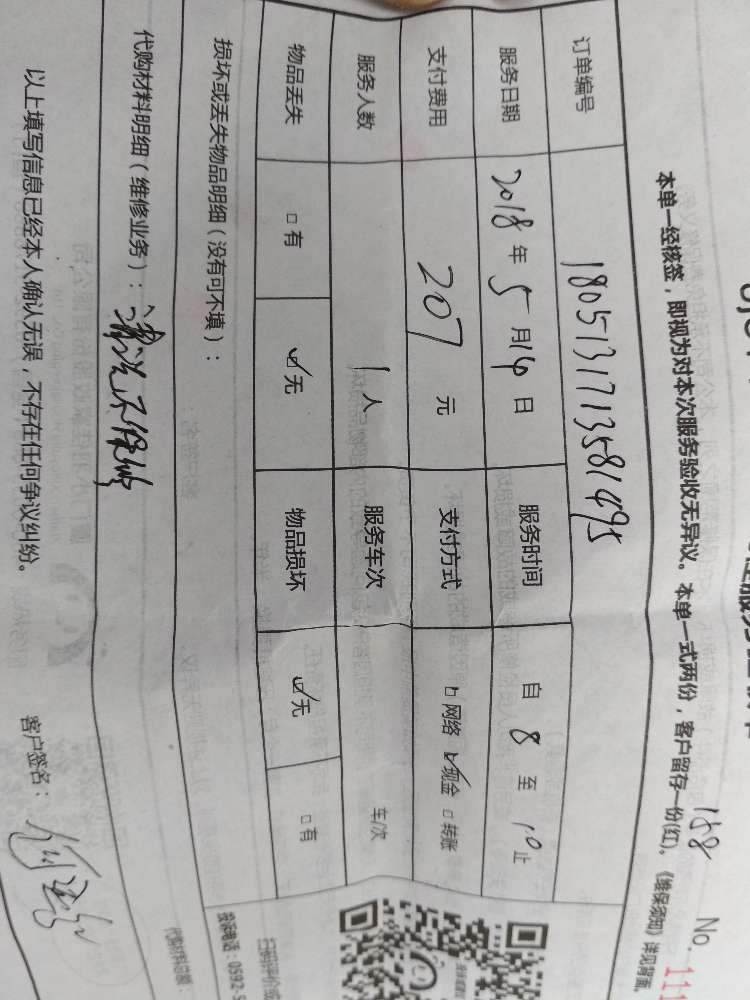 No. 11
158
本单一经核签，即视为对本次服务验收无异议。本单一式两份，客户留存一份(红)。《维保须知》详见背面。
订单编号 1805131713581495
服务日期 2018年5月14日 服务时间 自8至10止
支付费用 207元 支付方式 □网络 ☑现金 □转账
服务人数 1人 服务车次 车/次
物品丢失 □有 ☑无 物品损坏 ☑无 □有
损坏或丢失物品明细（没有可不填）：
代购材料明细（维修业务）：清洗不保修
代购材料总额：
投诉电话：0592-5
以上填写信息已经本人确认无误，不存在任何争议纠纷。 客户签名：